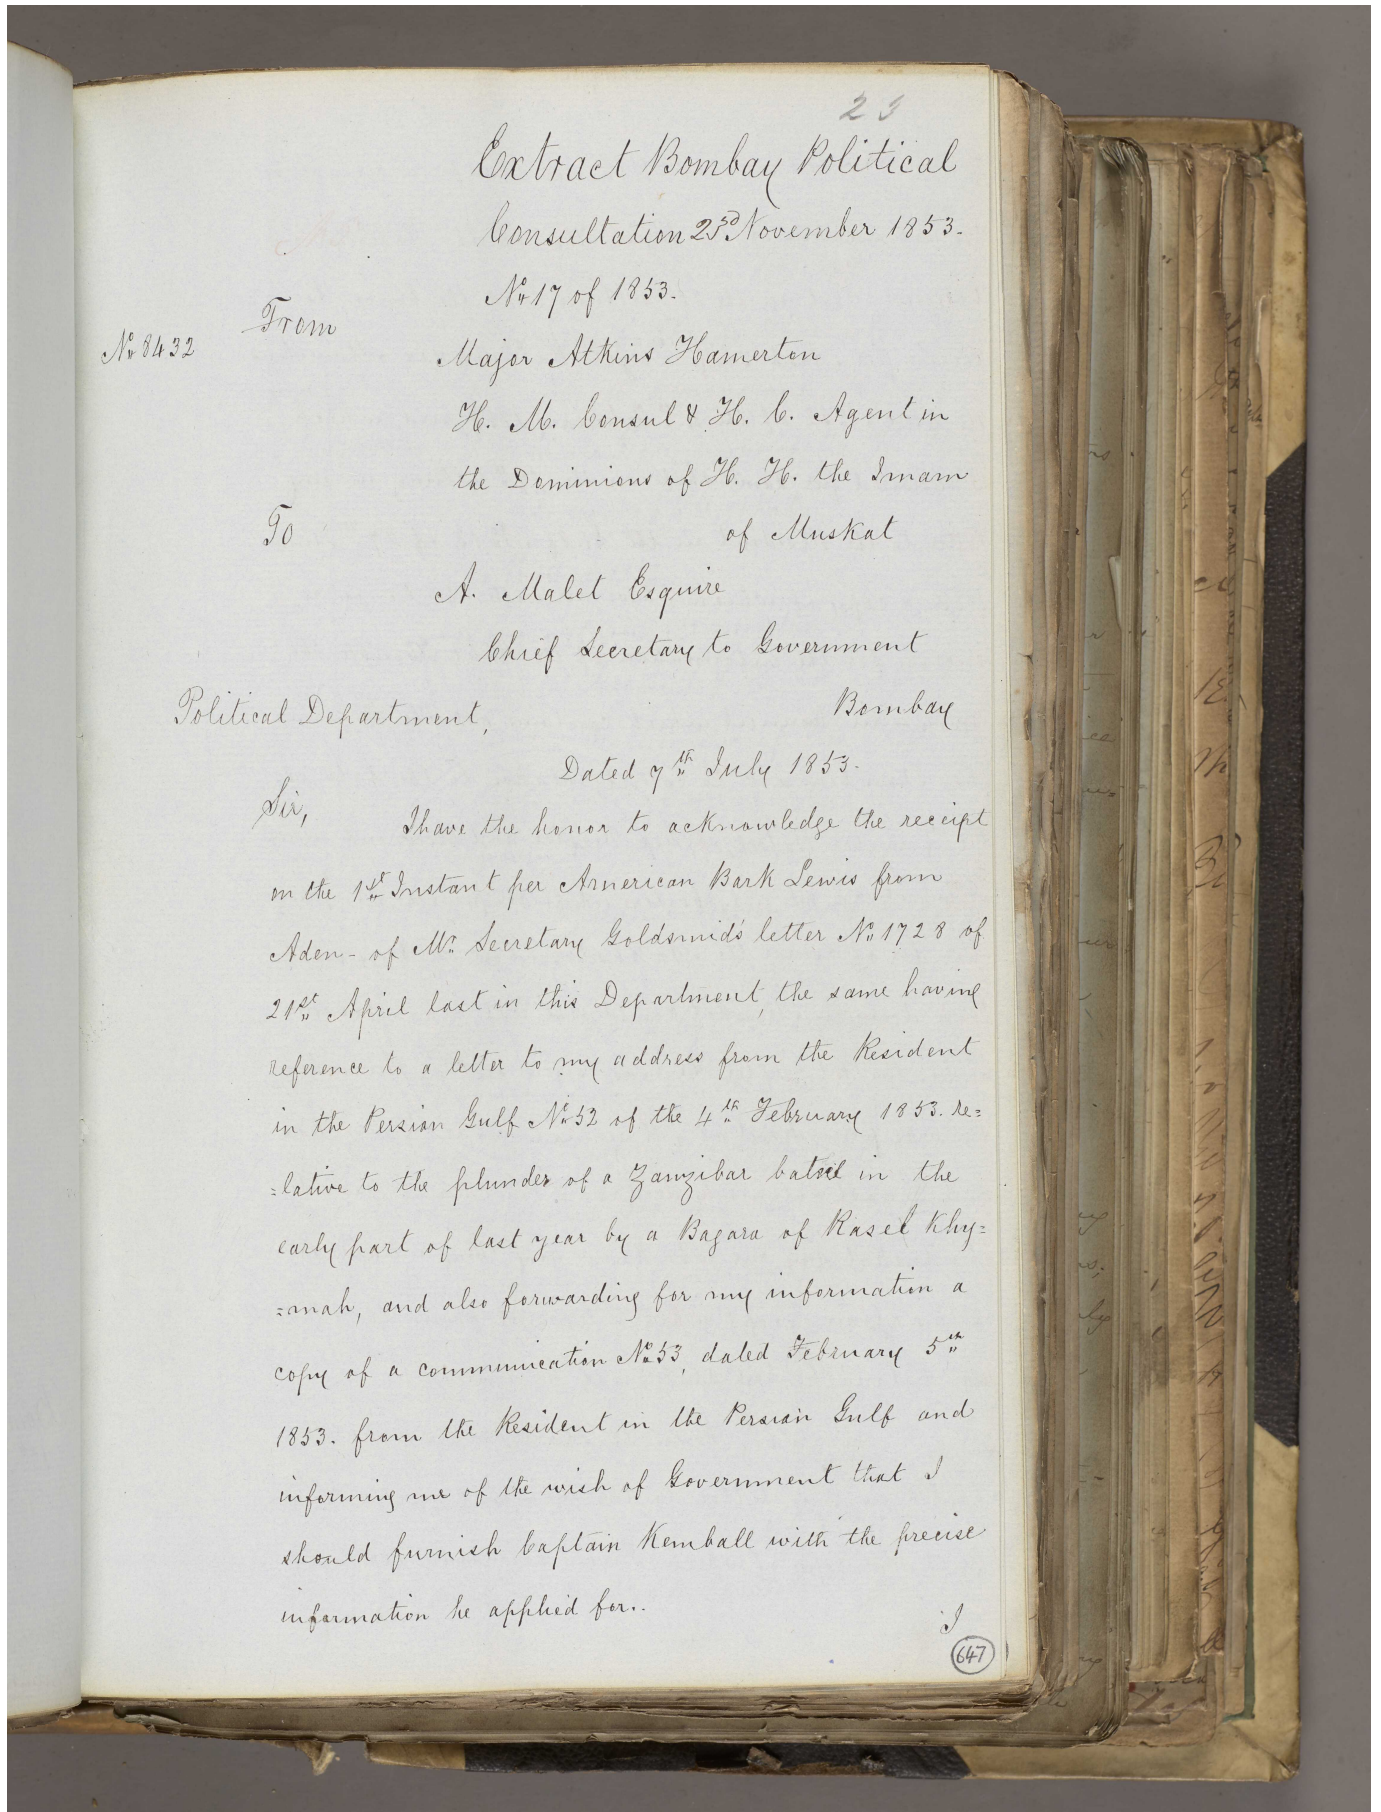 23
Extract Bombay Political
Consultation 23rd November 1853.
No 17 of 1853.
From
No 8432
Major Atkins Hamerton
H. M. Consul & H. C. Agent in
the Dominions of H. H. the Imam
of Muskat
To
A. Malet Esquire
Chief Secretary to Government
Bombay
Political Department,
Dated 7th July 1853.
Sir,
I have the honor to acknowledge the receipt
on the 1st Instant per American Bark Lewis from
Aden - of Mr Secretary Goldsmid's letter No 1728 of
21st April last in this Department, the same having
reference to a letter to my address from the Resident
in the Persian Gulf No 52 of the 4th February 1853. re=
=lative to the plunder of a Zanzibar bateel in the
early part of last year by a Bagara of Rasel Khy=
=mah, and also forwarding for my information a
copy of a communication No 53, dated February 5th
1853. from the Resident in the Persian Gulf and
informing me of the wish of Government that I
should furnish Captain Kemball with the precise
information he applied for..
I
647